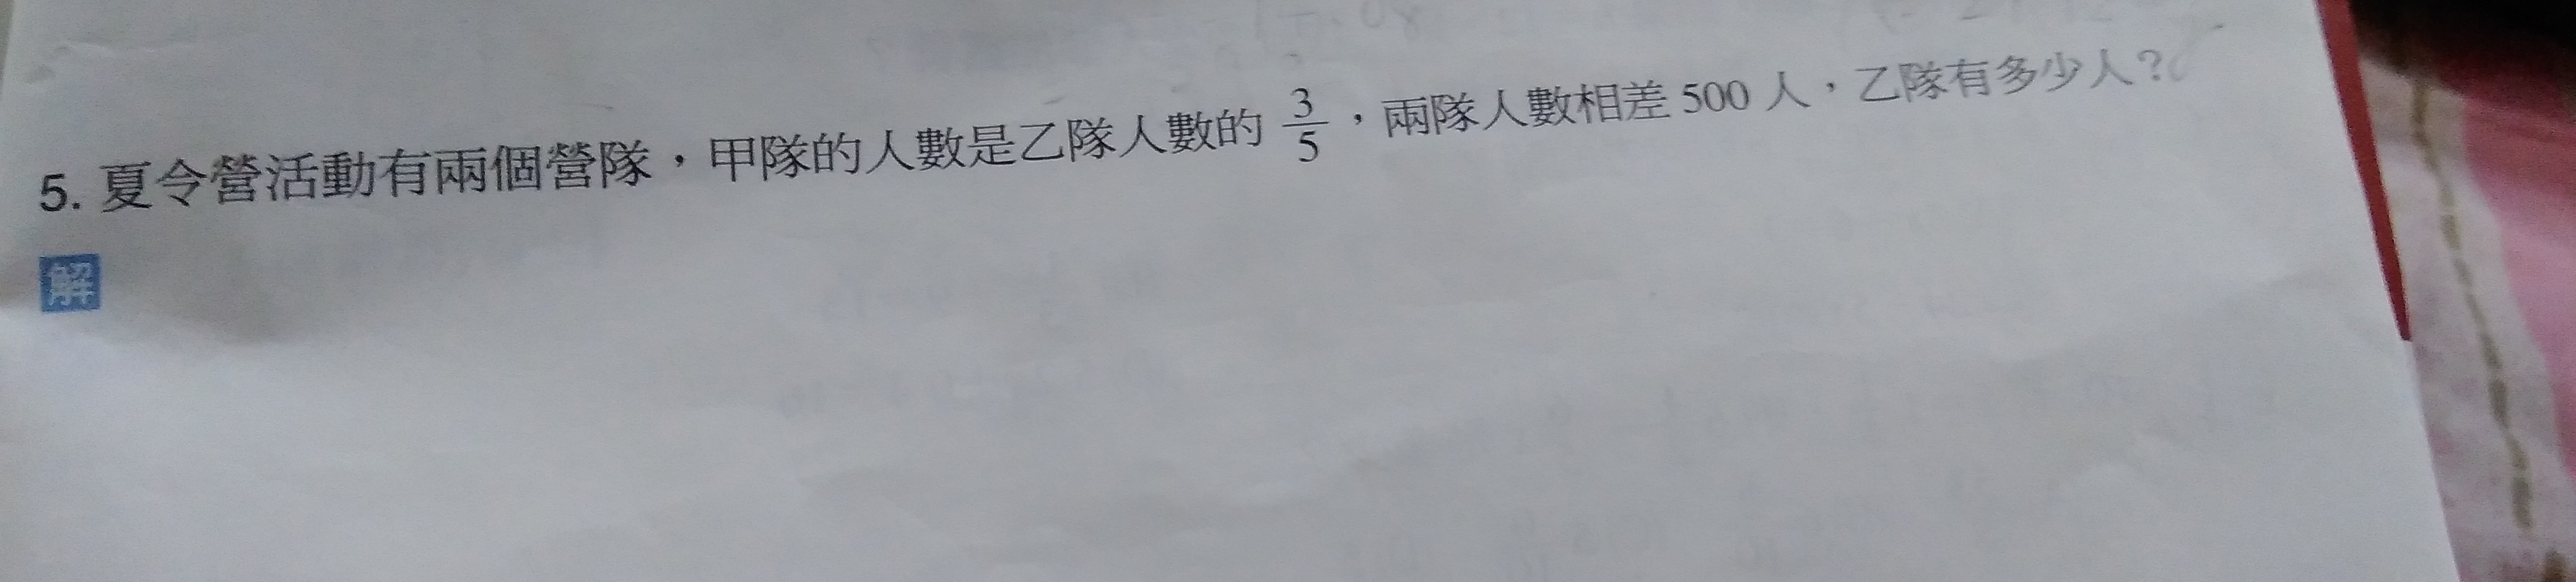 5. 夏令營活動有兩個營隊，甲隊的人數是乙隊人數的 3/5，兩隊人數相差 500 人，乙隊有多少人？
解